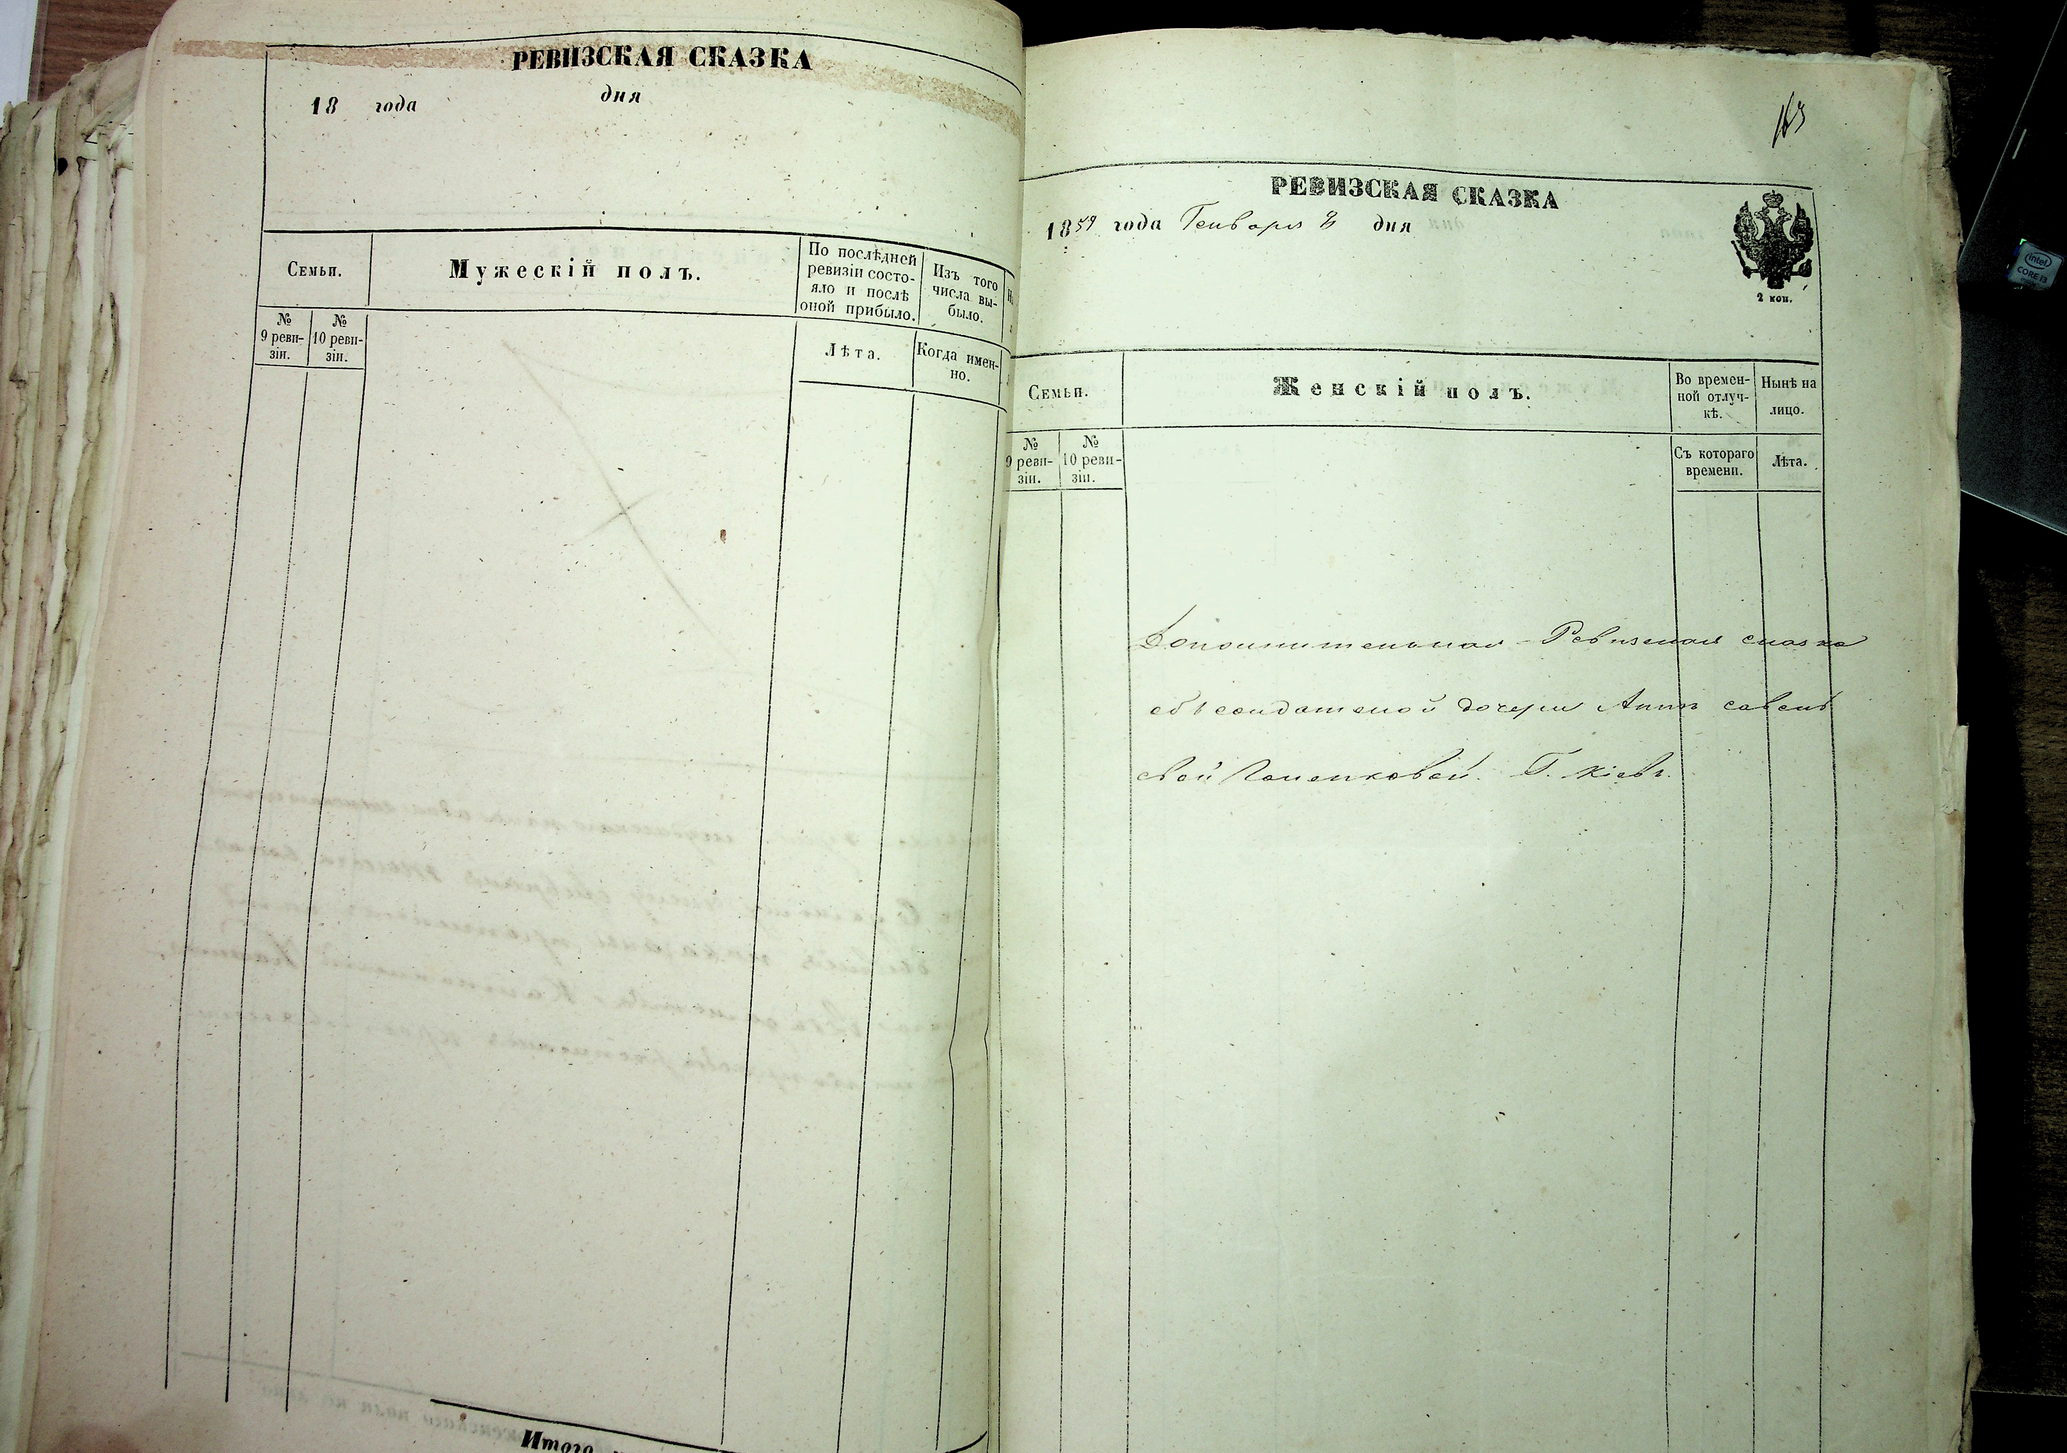 РЕВИЗСКАЯ СКАЗКА
18 года дня
Семьи.
Мужескій полъ.
По послѣдней
ревизіи состо-
яло и послѣ
оной прибыло.
Изъ того
числа вы-
было.
№
9 реви-
зіи.
№
10 реви-
зіи.
Лѣта.
Когда имен-
но.
Итого
163
РЕВИЗСКАЯ СКАЗКА
1859 года Генваря 8 дня
2 коп.
Семьи.
Женскій полъ.
Во времен-
ной отлуч-
кѣ.
Нынѣ на
лицо.
№
9 реви-
зіи.
№
10 реви-
зіи.
Съ котораго
времени.
Лѣта.
Дополнительная Ревизская сказка
объ солдатской дочери Аннѣ
Г. Кіевъ.
intel
CORE i3